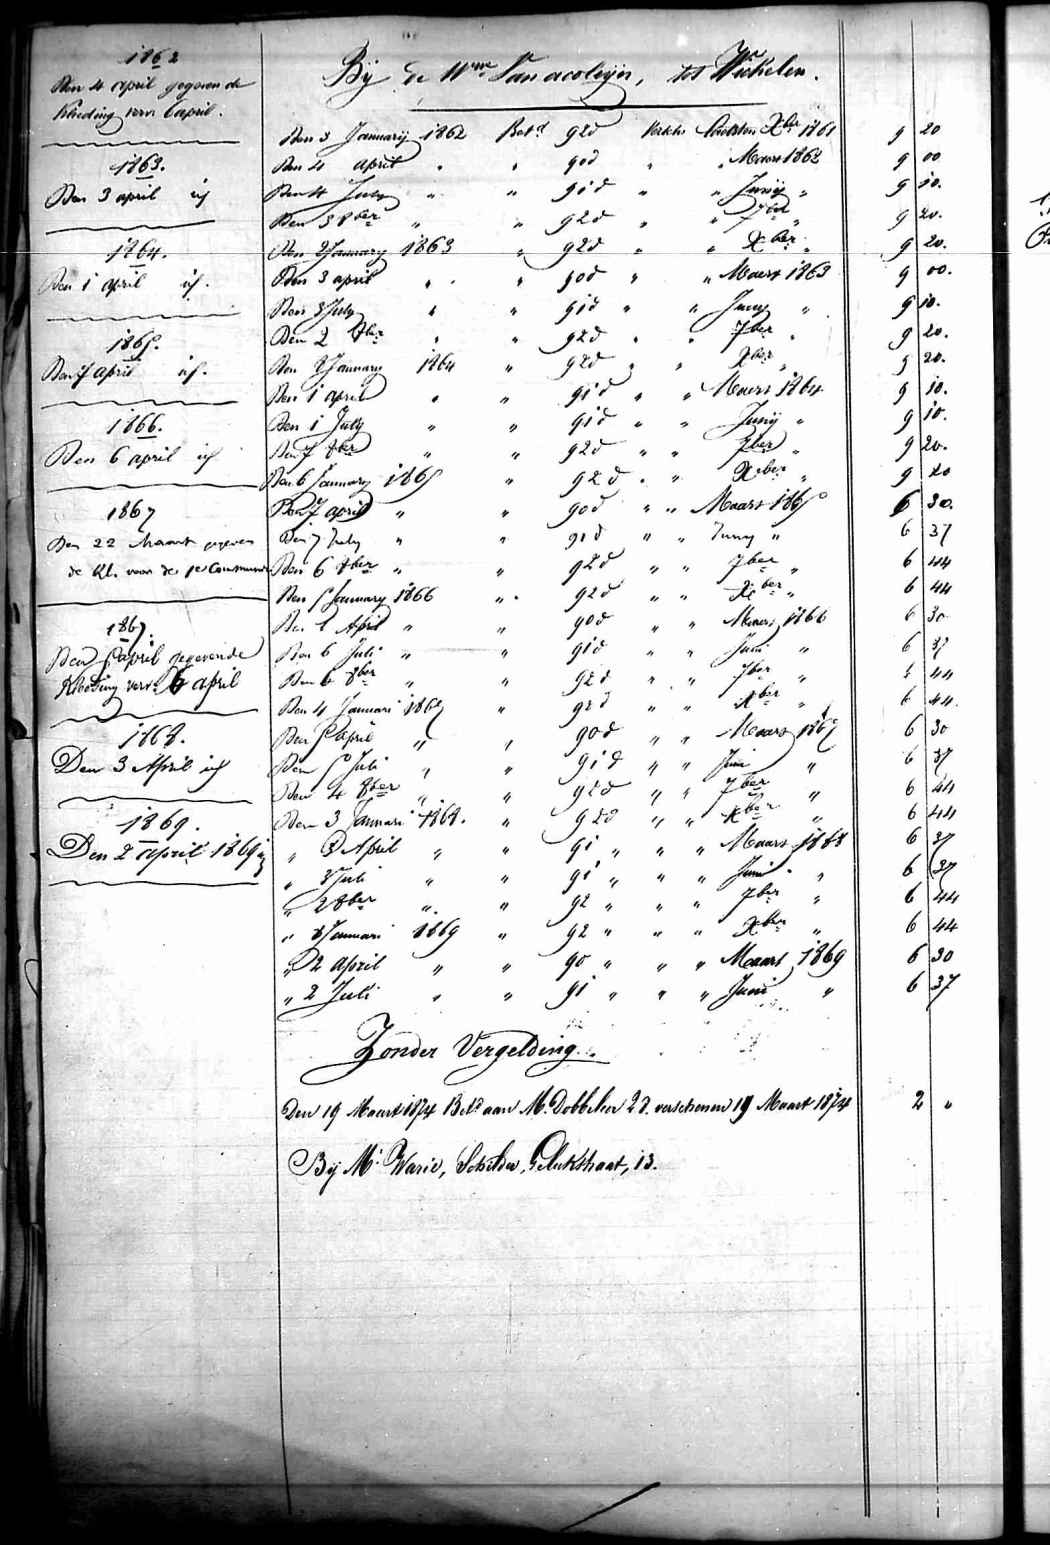 1862
Den 4 april gegeven de
Kleeding verv. 6 april.
1863.
Den 3 april id
1864.
Den 1 april id.
1865.
Den 7 april id.
1866.
Den 6 april id
1867
Den 22 Maart gegeven
de Kl. voor de 1e Communie
1867.
Den 5 april gegevende
Kleeding verv. 6 april
1868.
Den 3 April id
1869.
Den 2 april 1869 id
Bij de Wwe Van acoleijn, tot Wichelen.
Den 3 Januarij 1862 Betd 92d Verschn Xber 1861 9 20
Den 4 april " " 90d " " Maart 1862 9 00
Den 4 July " " 91d " " Junij " 9 10.
Den 3 8ber " " 92d " " 7ber " 9 20.
Den 2 January 1863 " 92d " " Xber " 9 20.
Den 3 april " " 90d " " Maart 1863 9 00.
Den 3 July " " 91d " " Juny " 9 10.
Den 2 8ber " " 92d " " 7ber " 9 20.
Den 2 January 1864 " 92d " " Xber " 9 20.
Den 1 april " " 91d " " Maart 1864 9 10.
Den 1 July " " 91d " " Junij " 9 10.
Den 7 8ber " " 92d " " 7ber " 9 20.
Den 6 January 1865 " 92d " " Xber " 9 20
Den 7 april " " 90d " " Maart 1865 6 30.
Den 7 July " " 91d " " Juny " 6 37
Den 6 8ber " " 92d " " 7ber " 6 44
Den 5 January 1866 " 92d " " Xber " 6 44
Den 6 April " " 90d " " Maart 1866 6 30
Den 6 Juli " " 91d " " Juni " 6 37
Den 6 8ber " " 92d " " 7ber " 6 44
Den 4 Januari 1867 " 92d " " Xber " 6 44.
Den 5 april " " 90d " " Maart 1867 6 30
Den 5 Juli " " 91d " " Juni " 6 37
Den 4 8ber " " 92d " " 7ber " 6 44
Den 3 Januari 1868. " 92d " " Xber " 6 44
" 3 April " " 91 " " " Maart 1868 6 37
" 3 Juli " " 91 " " " Juni " 6 37
" 2 8ber " " 92 " " " 7ber " 6 44
" 8 Januari 1869 " 92 " " " Xber " 6 44
" 2 april " " 90 " " " Maart 1869 6 30
" 2 Juli " " 91 " " " Juni " 6 37
Zonder Vergelding.
Den 19 Maart 1874 Betd aan M. Dobbelen 2 d. verschenen 19 Maart 1874 2 "
Bij Mr Warie, Schilder, Gelukstraat, 13.